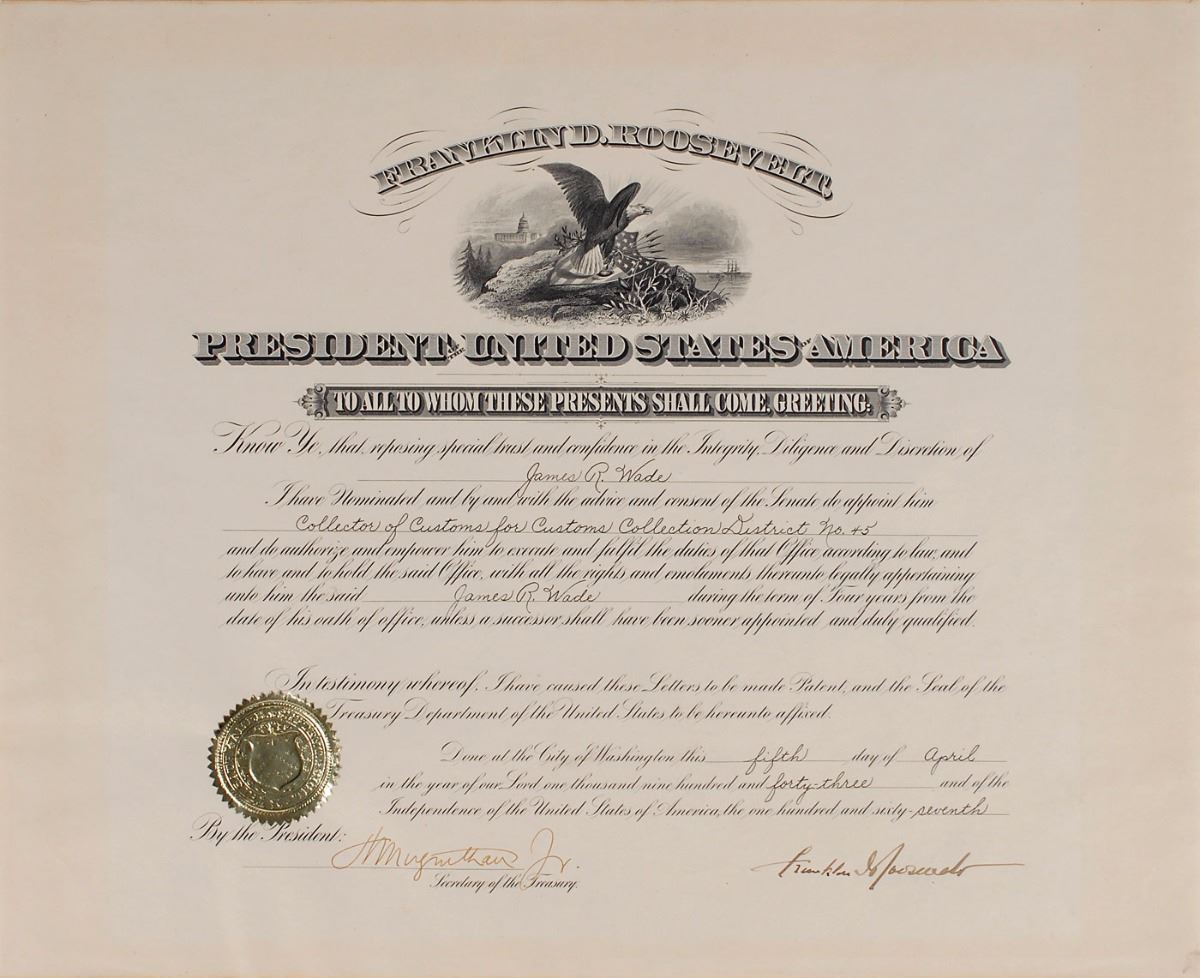 FRANKLIN D. ROOSEVELT,
PRESIDENT OF THE UNITED STATES OF AMERICA
TO ALL TO WHOM THESE PRESENTS SHALL COME, GREETING:
Know Ye, that, reposing special trust and confidence in the Integrity, Diligence and Discretion of
James R. Wade
I have Nominated, and by and with the advice and consent of the Senate, do appoint him
Collector of Customs for Customs Collection District No. 45
and do authorize and empower him to execute and fulfil the duties of that Office, according to law, and
to have and to hold the said Office, with all the rights and emoluments thereunto legally appertaining
unto him the said James R. Wade during the term of Four years from the
date of his oath of office, unless a successor shall have been sooner appointed and duly qualified.
In testimony whereof, I have caused these Letters to be made Patent, and the Seal of the
Treasury Department of the United States to be hereunto affixed.
Done at the City of Washington this fifth day of April
in the year of our Lord one thousand nine hundred and forty-three and of the
Independence of the United States of America, the one hundred and sixty-seventh
By the President:
H Morgenthau Jr. Franklin D Roosevelt
Secretary of the Treasury.